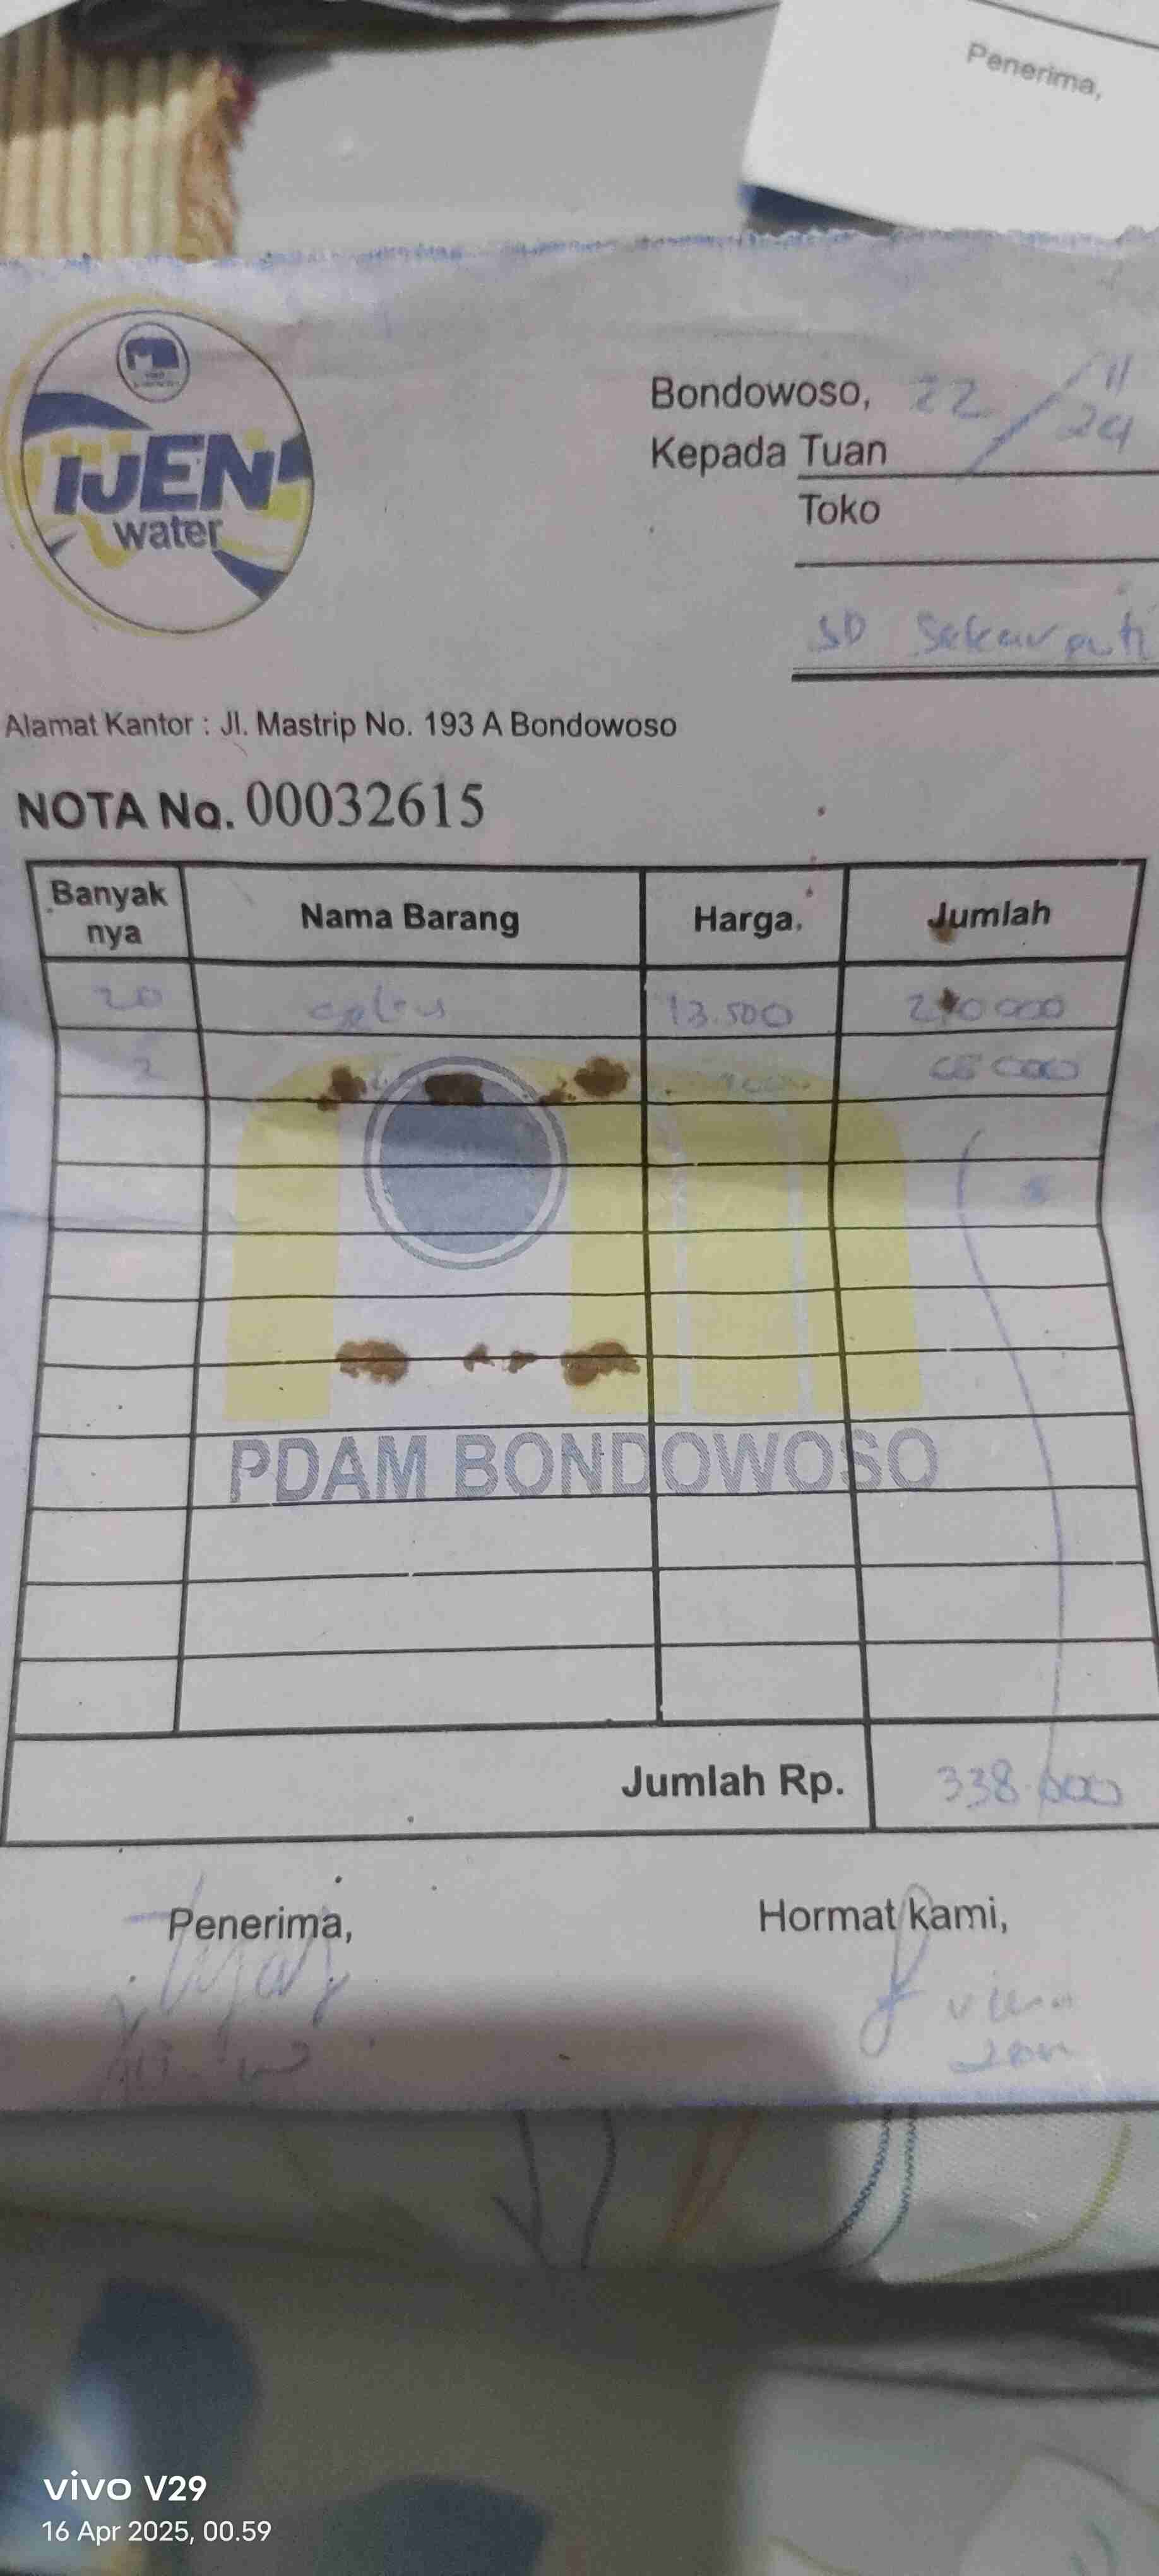 Penerima,
IJEN
water
Bondowoso, 22/11/24
Kepada Tuan
Toko
SD Sekarputi
Alamat Kantor : Jl. Mastrip No. 193 A Bondowoso
NOTA No. 00032615
Banyak nya Nama Barang Harga. Jumlah
20 13.500 270 000
2 68 000
PDAM BONDOWOSO
Jumlah Rp. 338.000
Penerima, Hormat kami,
vivo V29
16 Apr 2025, 00.59